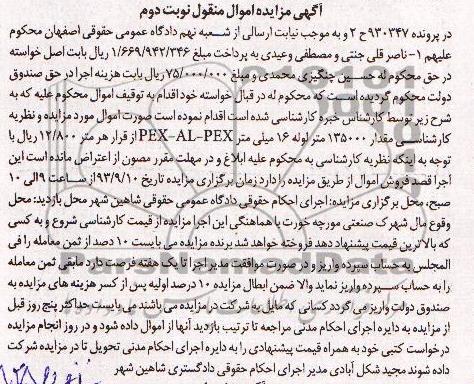 آگهی مزایده اموال منقول نوبت دوم
در پرونده ۹۳۰۳۴۷ح ۲ و به موجب نیابت ارسالی از شعبه نهم دادگاه عمومی حقوقی اصفهان محکوم
علیهم ۱- ناصر قلی جنتی و مصطفی وعیدی به پرداخت مبلغ ۱/۶۶۹/۹۴۲/۳۴۶ ریال بابت اصل خواسته
در حق محکوم له حسین چنگیزی محمدی و مبلغ ۷۵/۰۰۰/۰۰۰ ریال بابت هزینه اجرا در حق صندوق
دولت محکوم گردیده است که محکوم له در قبال خواسته خود اقدام به توقیف اموال محکوم علیه که به
شرح زیر توسط کارشناس خبره کارشناسی شده است اقدام نموده است صورت اموال مورد مزایده و نظریه
کارشناسی مقدار ۱۳۵۰۰۰ متر لوله ۱۶ میلی متر PEX-AL-PEX از قرار هر متر ۱۲/۸۰۰ ریال با
توجه به اینکه نظریه کارشناسی به محکوم علیه ابلاغ و در مهلت مقرر مصون از اعتراض مانده است این
اجرا قصد فروش اموال از طریق مزایده را دارد زمان برگزاری مزایده تاریخ ۹۳/۹/۱۰ از ساعت ۹ الی ۱۰
صبح، محل برگزاری مزایده: اجرای احکام حقوقی دادگاه عمومی حقوقی شاهین شهر محل بازدید: محل
وقوع مال شهرک صنعتی مورچه خورت با هماهنگی این اجرا مزایده از قیمت کارشناسی شروع و به کسی
که بالاترین قیمت پیشنهاد دهد فروخته خواهد شد برنده مزایده می بایست ۱۰ درصد از ثمن معامله را فی
المجلس به حساب سپرده واریز و در صورت موافقت مدیر اجرا تا یک هفته فرصت دارد مابقی ثمن معامله
را به حساب سپرده واریز نماید والا ضمن ابطال مزایده ۱۰ درصد اولیه پس از کسر هزینه های مزایده به
صندوق دولت واریز می گردد کسانی که مایل به شرکت در مزایده می باشند می بایست حداکثر پنج روز قبل
از مزایده به دایره اجرای احکام مدنی مراجعه تا ترتیب بازدید آنها از اموال داده شود و در روز انجام مزایده
درخواست کتبی خود به همراه قیمت پیشنهادی را به دایره اجرای احکام مدنی تحویل تا در مزایده شرکت
داده شوند مجید شکل آبادی مدیر اجرای احکام حقوقی دادگستری شاهین شهر